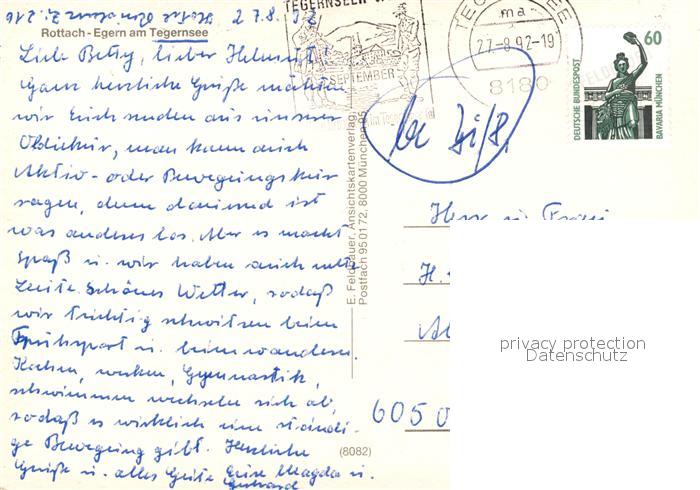 27.8.92
Rottach-Egern am Tegernsee
Liebe Betsy, lieber Helmut!
Ganz herzliche Grüße möchten
wir Euch senden aus unserer
man kann auch
Aktiv- oder Bewegungskur
sagen, denn dauernd ist
was anderes los. Aber es macht
Spaß u. wir haben auch nette
Leute. Schönes Wetter, sodaß
wir tüchtig schwitzen beim
Frühsport u. beim wandern.
Gymnastik,
schwimmen wechseln sich ab,
sodaß es wirklich eine ständi-
ge Bewegung gibt. Herzliche
Grüße u. alles Gute Eure Magda u.
Gerhard
TEGERNSEER
SEPTEMBER
TEGERNSEE
ma
27-8.92-19
8180
60
DEUTSCHE BUNDESPOST
BAVARIA MÜNCHEN
E. Feldbauer, Ansichtskartenverlag,
Postfach 950172, 8000 München 95
Herr u. Frau
H.
605 0
(8082)
privacy protection
Datenschutz